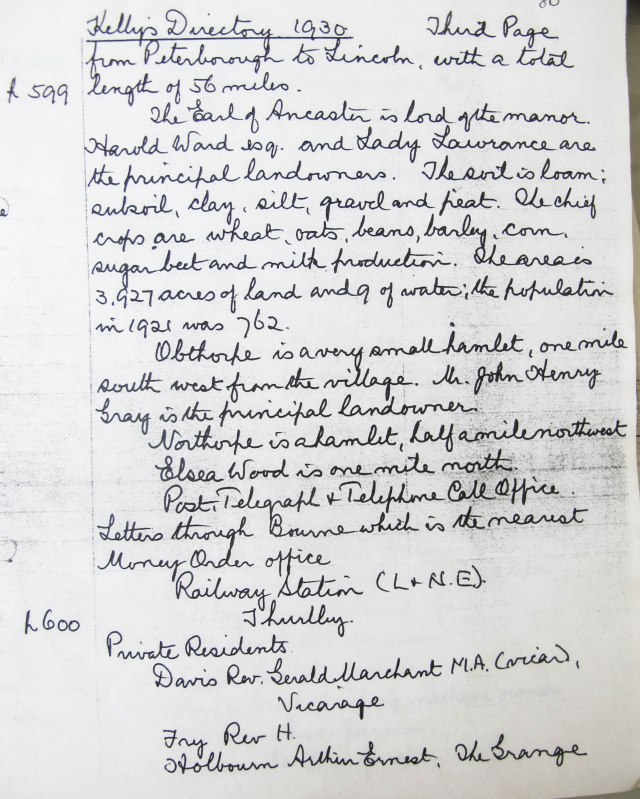 80
Kelly's Directory 1930 Third Page
from Peterborough to Lincoln, with a total
p 599 length of 56 miles.
The Earl of Ancaster is lord of the manor.
Harold Ward esq. and Lady Lawrance are
the principal landowners. The soil is loam;
subsoil, clay, silt, gravel and peat. The chief
crops are wheat, oats, beans, barley, corn,
sugar beet and milk production. The area is
3,927 acres of land and 9 of water; the population
in 1921 was 762.
Obthorpe is a very small hamlet, one mile
south west from the village. Mr. John Henry
Gray is the principal landowner.
Northorpe is a hamlet, half a mile northwest
Elsea Wood is one mile north
Post, Telegraph & Telephone Call Office.
Letters through Bourne which is the nearest
Money Order office
Railway Station (L & N.E).
Thurlby.
p600
Private Residents
Davis Rev. Gerald Marchant M.A. (vicar),
Vicarage
Fry Rev H.
Holbourn Arthur Ernest, The Grange